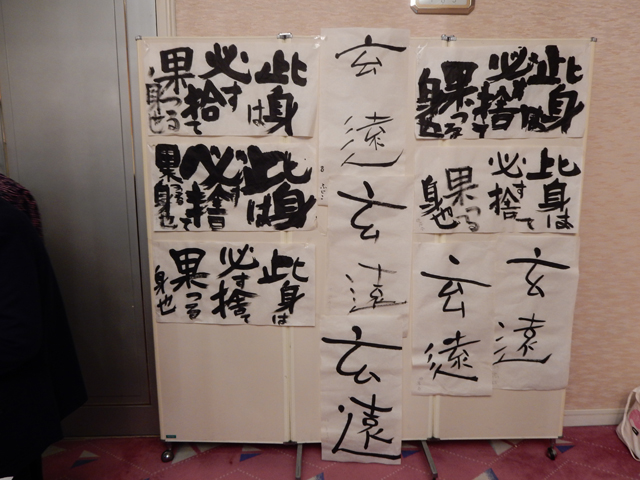 此身は
必す捨て
果つる
身也
此身は
必す捨て
果つる
身也
玄遠
玄遠
玄遠
玄遠
玄遠
此身は
必す捨て
果つる
身也
此身は
必す捨て
果つる
身也
此身は
必す捨て
果つる
身也